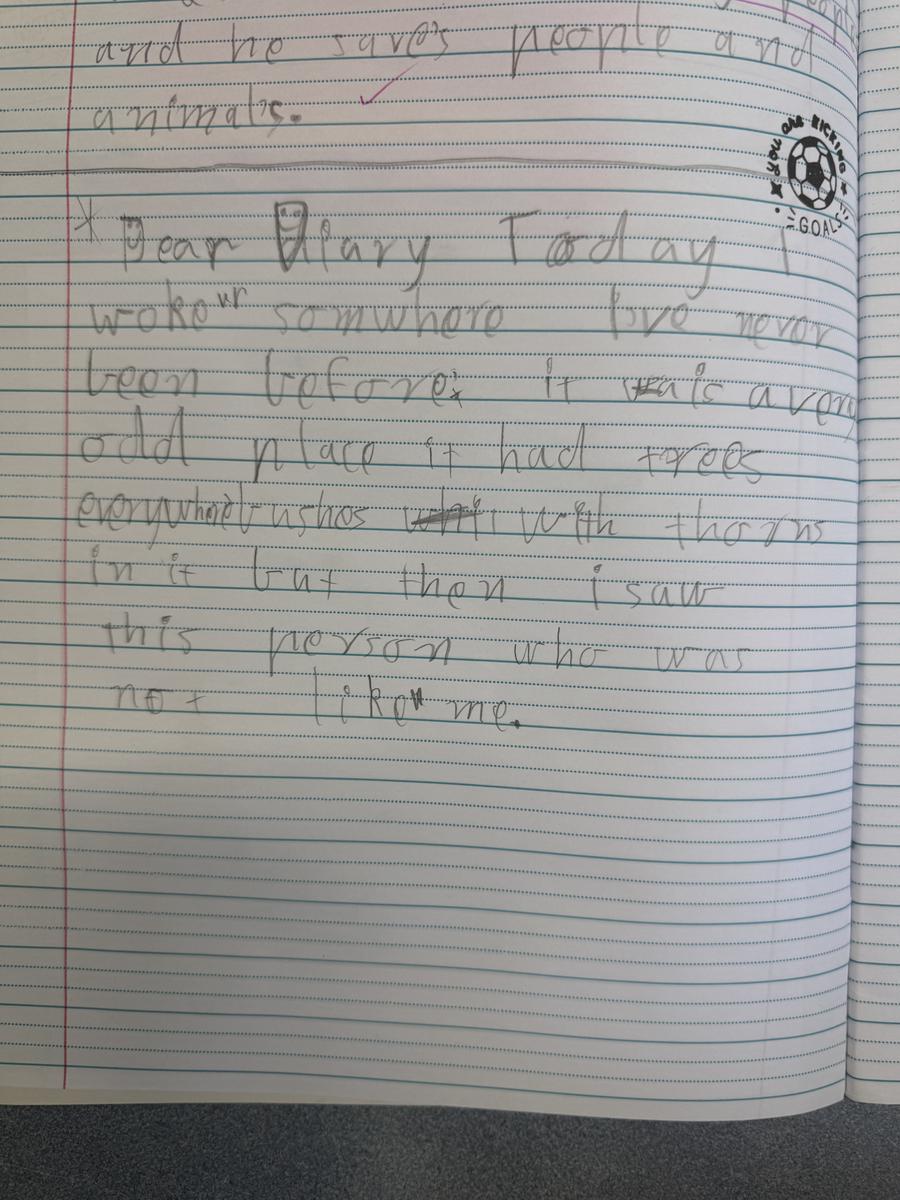 and he saves people and
animals.
YOU ARE KICKING
GOALS
* Dear Diary Today I
woke up somwhere I've never
been before: it is a very
odd place it had trees
everywhere bushes with thorns
in it but then i saw
this person who was
not like me.